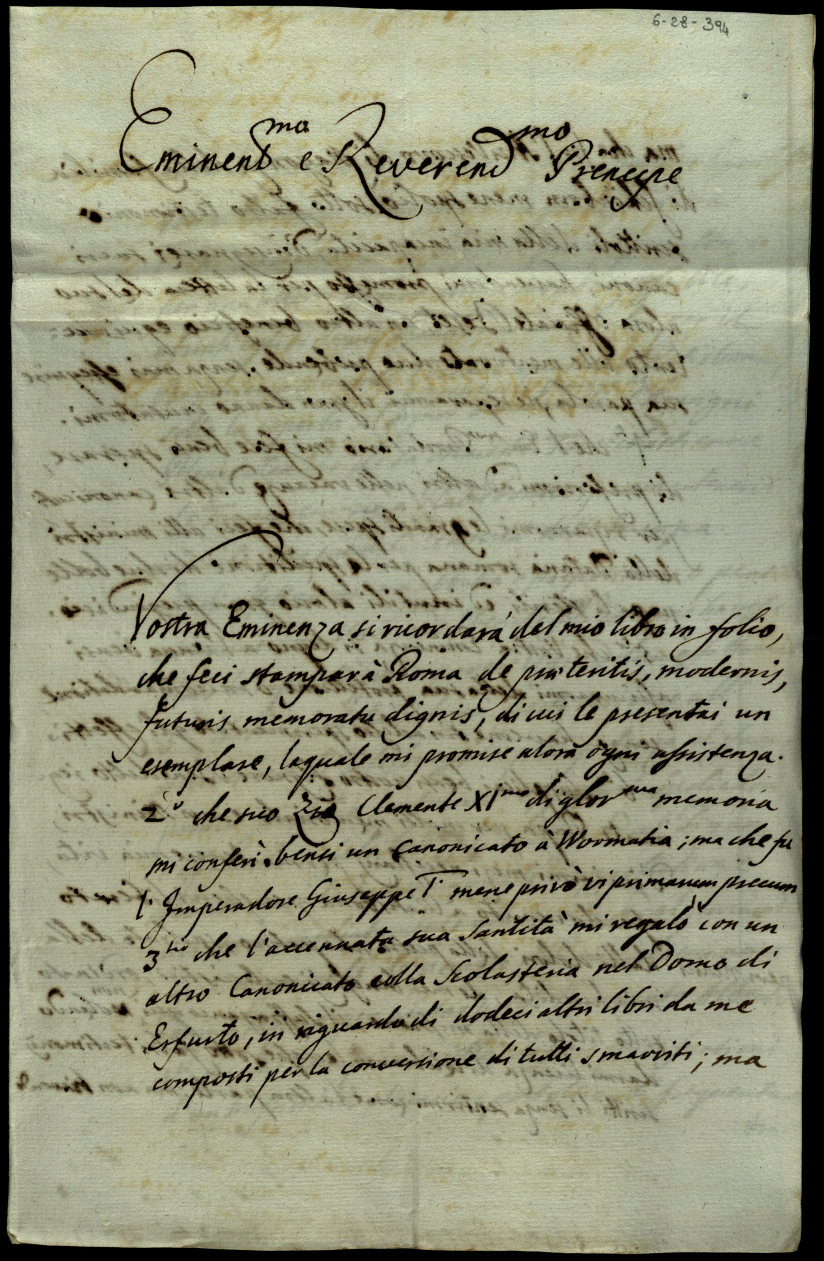 6-28-394
Eminend^mo e Reverend^mo Prencipe
Vostra Eminenza si ricordarà del mio libro in folio,
che feci stampar à Roma de praeteritis, modernis,
futuris memoratu dignis, di cui le presentai un
esemplare, laquale mi promise alora ogni assistenza.
2° che suo Zio Clemente XI^mo di glor^ma memoria
mi conferì bensi un Canonicato à Wormatia; ma che fu
l' Imperadore Giuseppe I° mene privò vi primarum precum
3^tio che l'accennata sua Santità mi regalò con un
altro Canonicato colla Scolasteria nel Domo di
Erfurto, in riguardo di dodeci altri libri da me
composti per la conversione di tutti smarriti; ma